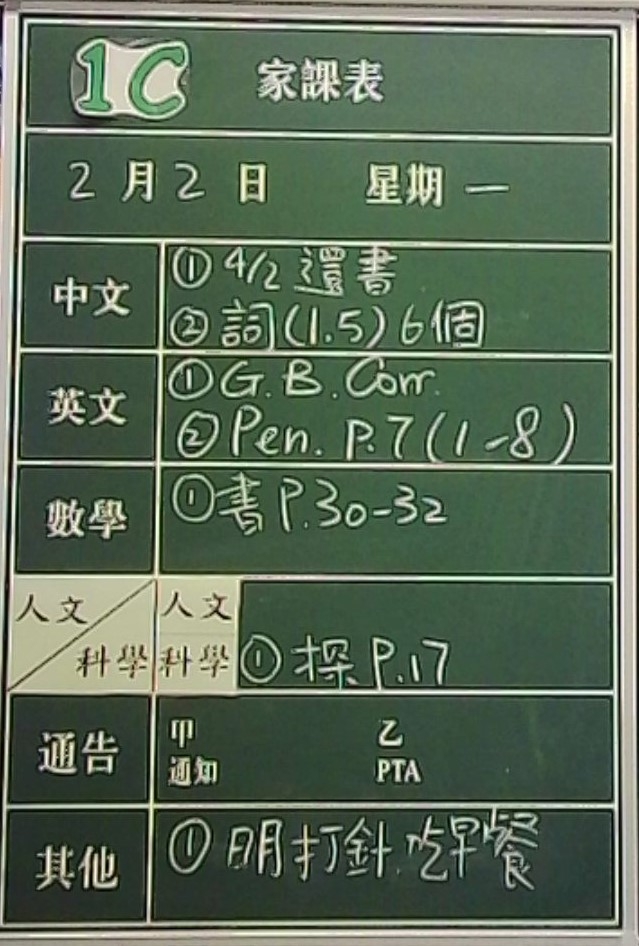 1C 家課表
2 月 2 日 星期 一
中文 ① 4/2 還書
② 詞(1.5) 6個
英文 ① G.B. Corr.
② Pen. P.7 (1-8)
數學 ① 書 P.30-32
人文 人文
科學 科學 ① 探 P.17
通告 甲 乙
通知 PTA
其他 ① 明打針, 吃早餐